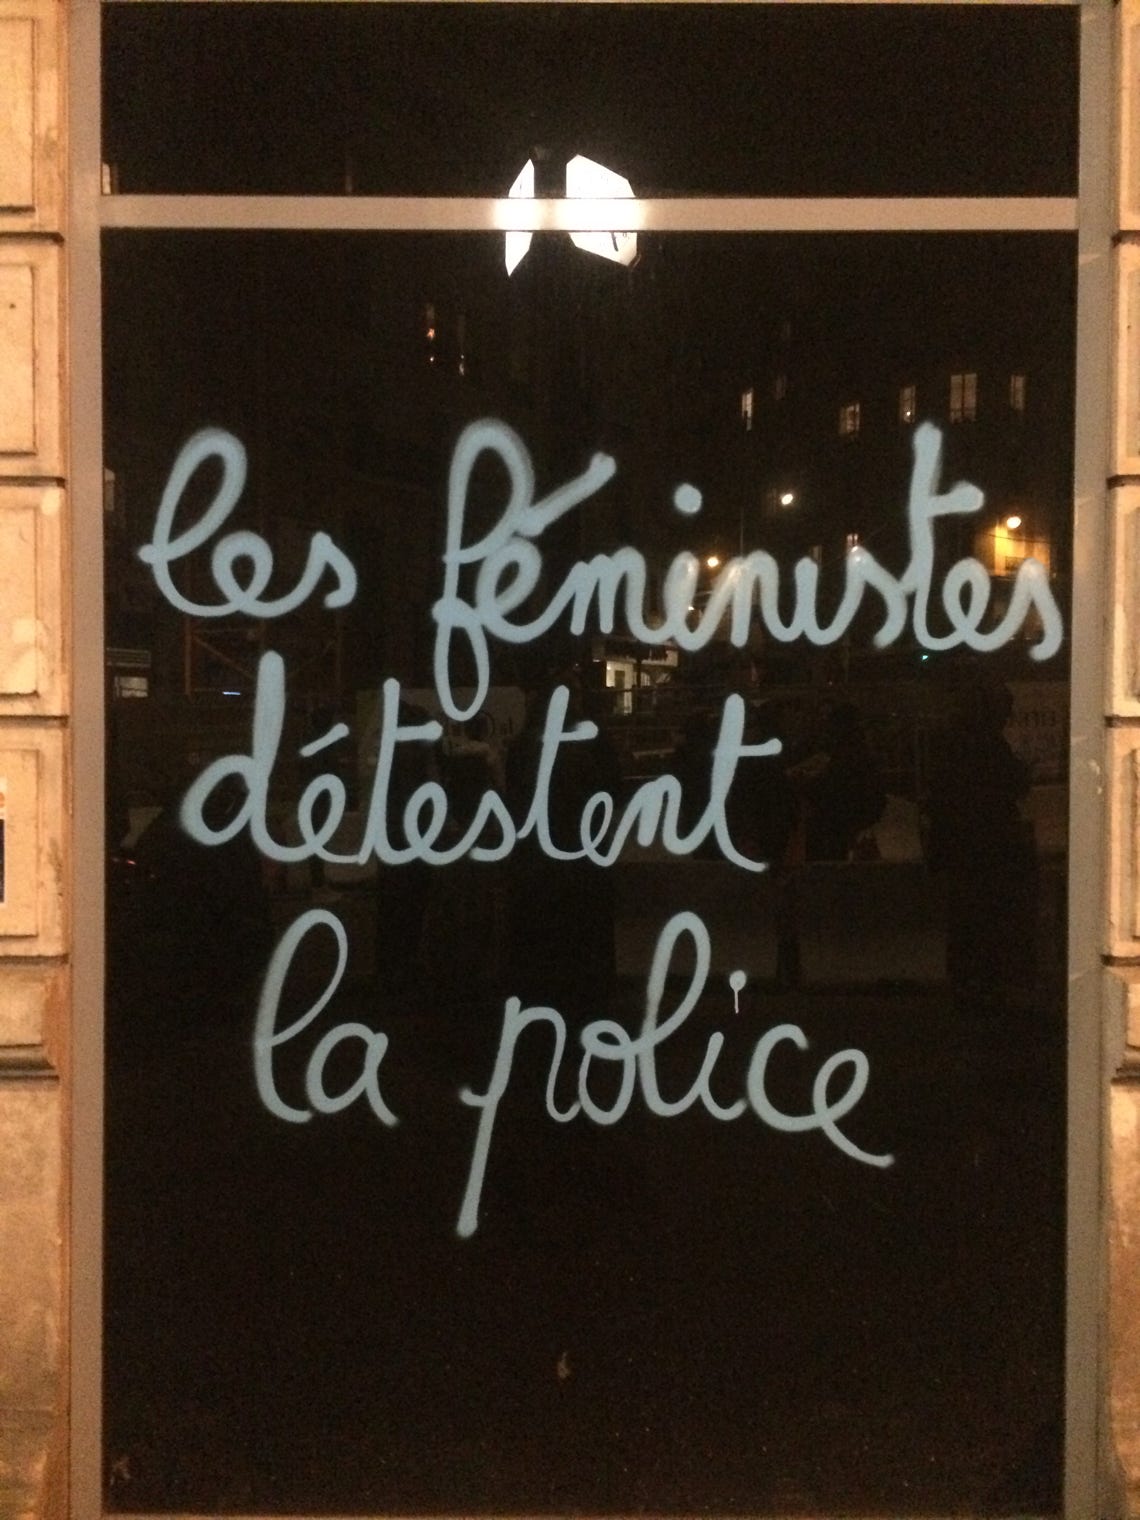 les féministes
détestent
la police